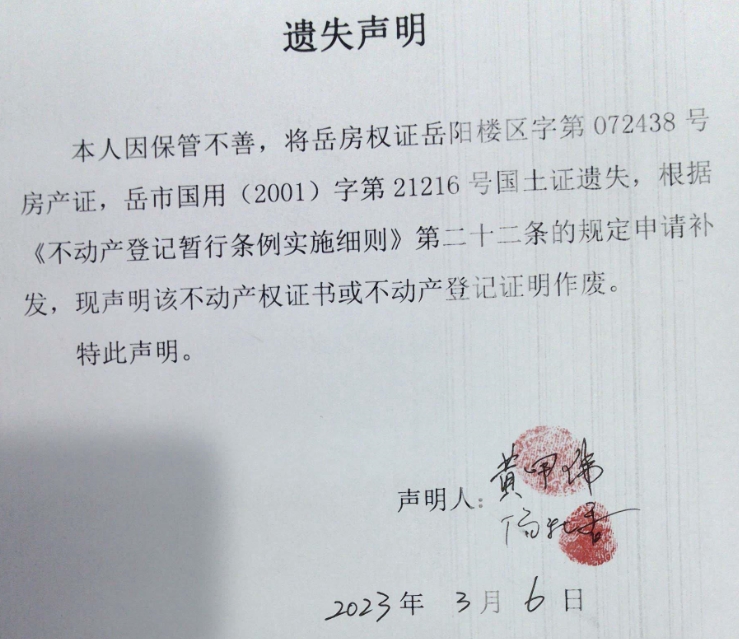 遗失声明
本人因保管不善，将岳房权证岳阳楼区字第 072438 号
房产证，岳市国用（2001）字第 21216 号国土证遗失，根据
《不动产登记暂行条例实施细则》第二十二条的规定申请补
发，现声明该不动产权证书或不动产登记证明作废。
特此声明。
声明人：黄
2023 年 3 月 6 日